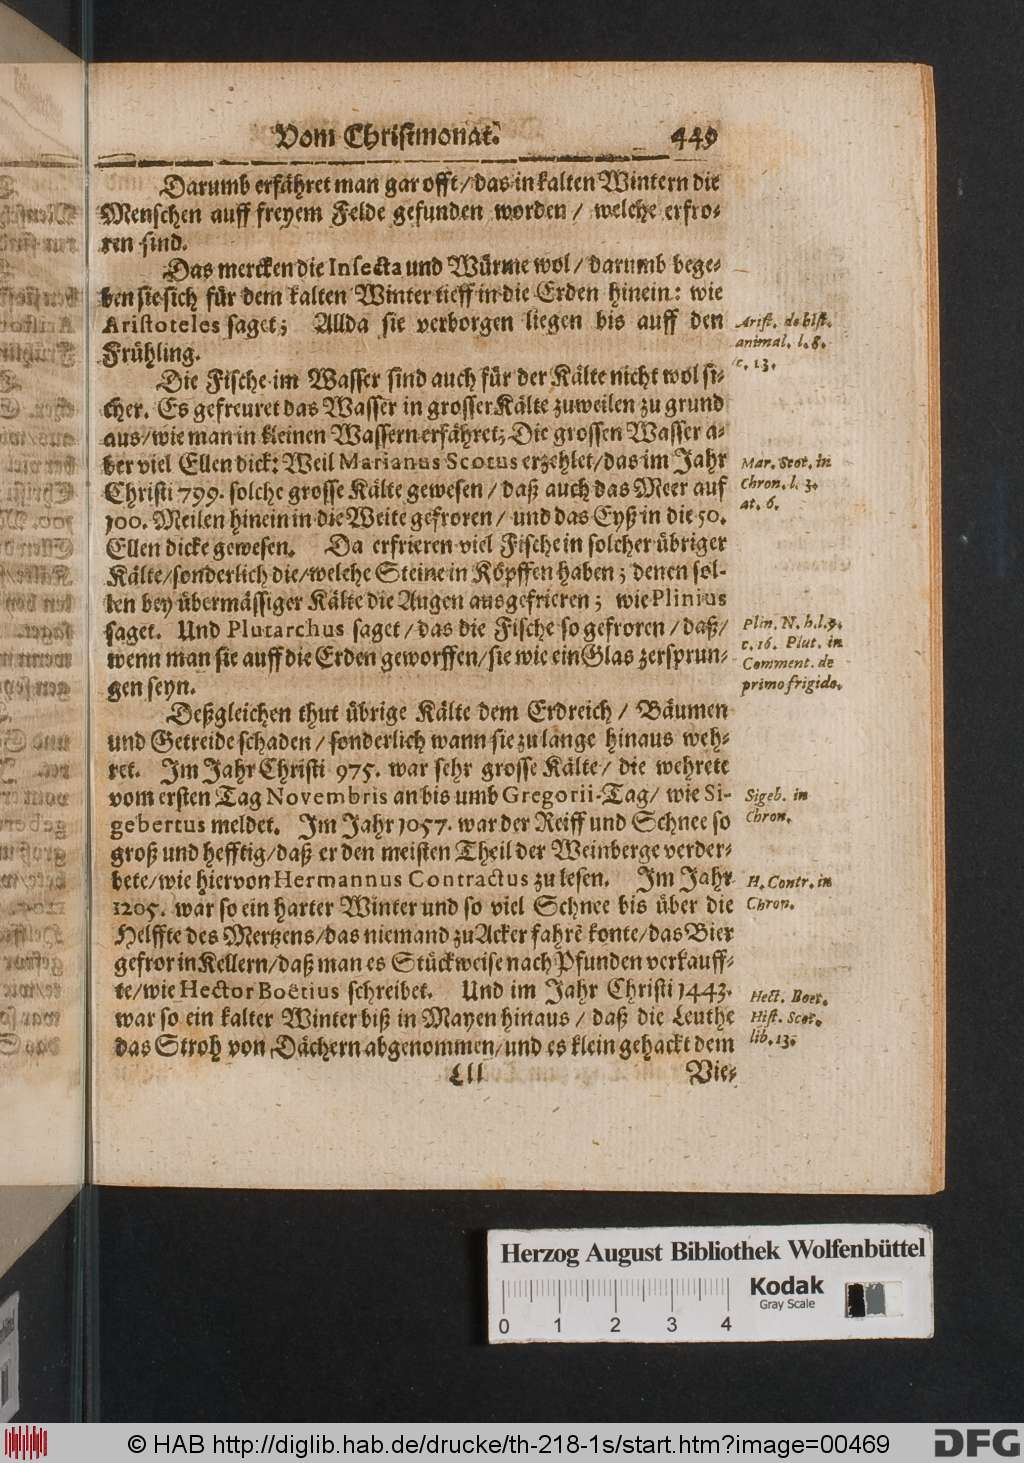 Vom Christmonat. 449
Darumb erfähret man gar offt/das in kalten Wintern die
Menschen auff freyem Felde gefunden worden/ welche erfro-
ren sind.
Das mercken die Insecta und Würme wol/ darumb bege-
ben sie sich für dem kalten Winter tieff in die Erden hinein: wie
Aristoteles saget; Allda sie verborgen liegen bis auff den
Frühling.
Arist. de hist.
animal. l. 8.
c. 13.
Die Fische im Wasser sind auch für der Kälte nicht wol si-
cher. Es gefreuret das Wasser in grosser Kälte zuweilen zu grund
aus/wie man in kleinen Wassern erfähret; Die grossen Wasser a-
ber viel Ellen dick: Weil Marianus Scotus erzehlet/das im Jahr
Christi 799. solche grosse Kälte gewesen/daß auch das Meer auf
100. Meilen hinein in die Weite gefroren/ und das Eyß in die 50.
Ellen dicke gewesen. Da erfrieren viel Fische in solcher übriger
Kälte/sonderlich die/welche Steine in Köpffen haben; denen sol-
len bey übermässiger Kälte die Augen ausgefrieren; wie Plinius
saget. Und Plutarchus saget/das die Fische so gefroren/daß/
wenn man sie auff die Erden geworffen/sie wie ein Glas zersprun-
gen seyn.
Mar. Scot. in
Chron. l. 3.
æt. 6.
Plin. N. h. l. 9.
c. 16. Plut. in
Comment. de
primo frigido.
Deßgleichen thut übrige Kälte dem Erdreich/ Bäumen
und Getreide schaden/sonderlich wann sie zu lange hinaus weh-
ret. Im Jahr Christi 975. war sehr grosse Kälte/ die wehrete
vom ersten Tag Novembris an bis umb Gregorii-Tag/ wie Si-
gebertus meldet. Im Jahr 1057. war der Reiff und Schnee so
groß und hefftig/daß er den meisten Theil der Weinberge verder-
bete/wie hiervon Hermannus Contractus zu lesen. Im Jahr
1205. war so ein harter Winter und so viel Schnee bis über die
Helffte des Mertzens/das niemand zu Acker fahrē konte/das Bier
gefror in Kellern/daß man es Stückweise nach Pfunden verkauff-
te/wie Hector Boëtius schreibet. Und im Jahr Christi 1443.
war so ein kalter Winter biß in Mayen hinaus/ daß die Leuthe
das Stroh von Dächern abgenommen/und es klein gehackt dem
Sigeb. in
Chron.
H. Contr. in
Chron.
Hect. Boet.
Hist. Scot.
lib. 13.
Lll Vie-
Herzog August Bibliothek Wolfenbüttel
Kodak
Gray Scale
0 1 2 3 4
© HAB http://diglib.hab.de/drucke/th-218-1s/start.htm?image=00469
DFG